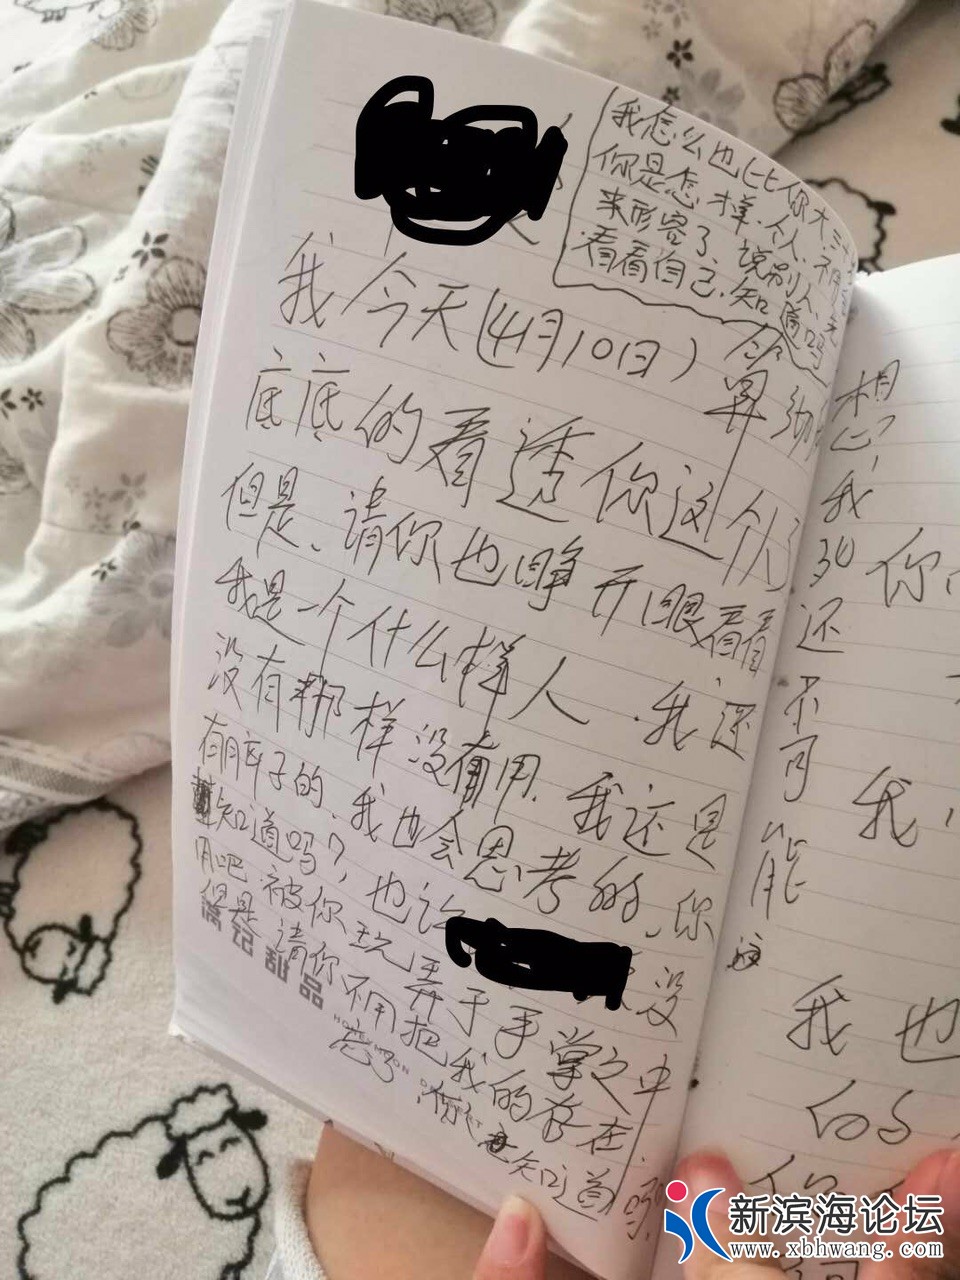 我怎么也比你大
你是怎样人
来形容了、说别人
看看自己.知道吗
我今天(4月10日)算
底底的看透你这个
但是、请你也睁开眼看看、
我是一个什么样人.我还
没有那样没有用.我还是
有脾子的.我也会思考的,你
知道吗?也许
没
用吧被你玩弄于手掌之中
但是请你不用把我的存在
忘了
知道吗
满记甜品
想
我
还
不
可
能
你
我,
我也
的
新滨海论坛
www.xbhwang.com